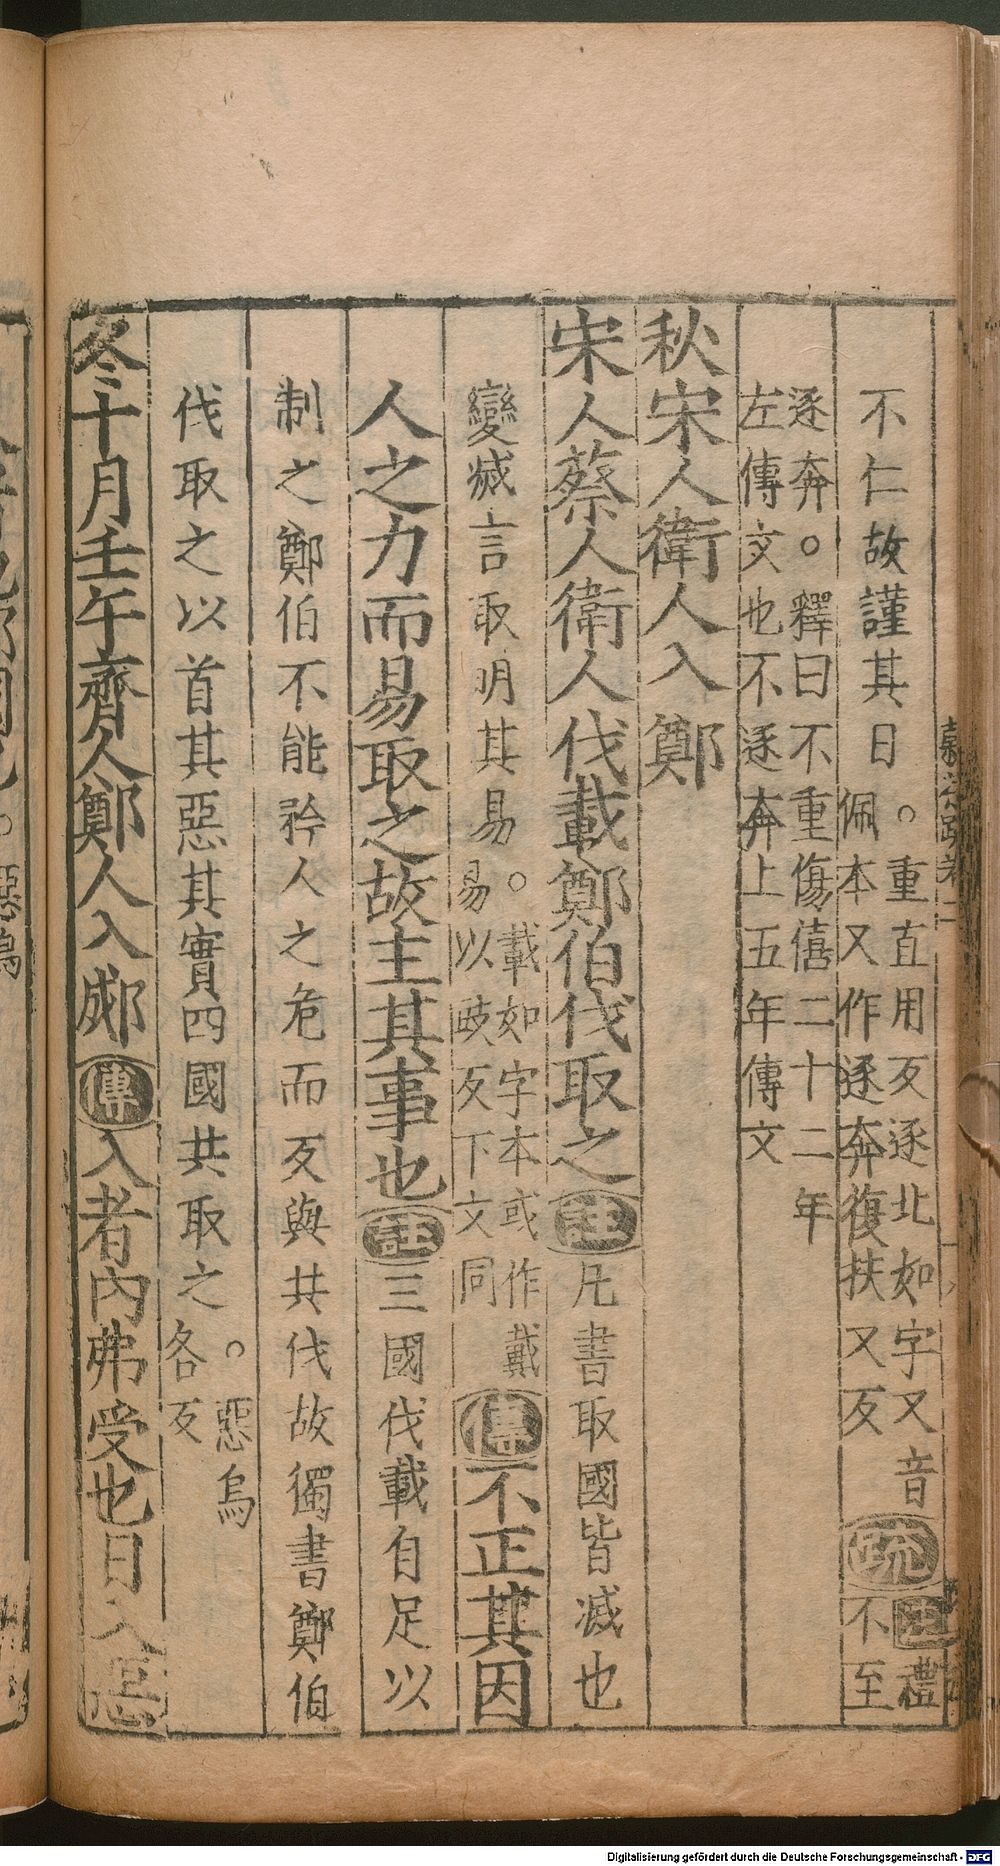 不仁故謹其日。重直用反逐北如字又音佩本又作逐奔復扶又反疏注禮不至
逐奔。釋曰不重傷僖二十二年左傳文也不逐奔上五年傳文
秋宋人衛人入鄭
宋人蔡人衛人伐載鄭伯伐取之註凡書取國皆滅也
變滅言取明其易。載如字本或作戴易以豉反下文同傳不正其因
人之力而易取之故主其事也註三國伐載自足以
制之鄭伯不能矜人之危而反與共伐故獨書鄭伯
伐取之以首其惡其實四國共取之。惡烏各反
冬十月壬午齊人鄭人入郕傳入者內弗受也日入惡
Digitalisierung gefördert durch die Deutsche Forschungsgemeinschaft - DFG